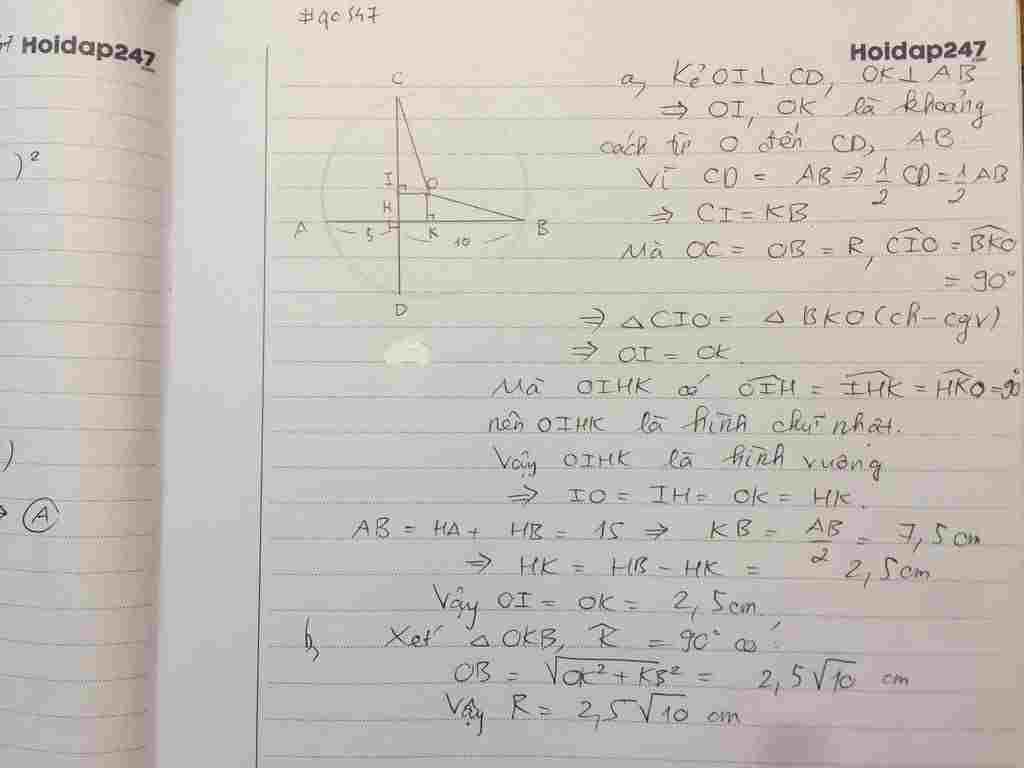 #qo547
Hoidap247
Hoidap247
)²
)
A
C
I
O
H
A
5
K
10
B
D
a, Kẻ OI ⊥ CD, OK ⊥ AB
⇒ OI, OK là khoảng
cách từ O đến CD, AB
Vì CD = AB ⇒ 1/2 CD = 1/2 AB
⇒ CI = KB
Mà OC = OB = R, CIO^ = BKO^
= 90°
⇒ △CIO = △BKO (ch-cgv)
⇒ OI = OK.
Mà OIHK có OIH^ = IHK^ = HKO^ = 90°
nên OIHK là hình chữ nhật.
Vậy OIHK là hình vuông
⇒ IO = IH = OK = HK.
AB = HA + HB = 15 ⇒ KB = AB/2 = 7,5 cm
⇒ HK = HB - HK = 2,5 cm
Vậy OI = OK = 2,5 cm
b, Xét △OKB, K^ = 90° có:
OB = √(OK² + KB²) = 2,5√10 cm
Vậy R = 2,5√10 cm